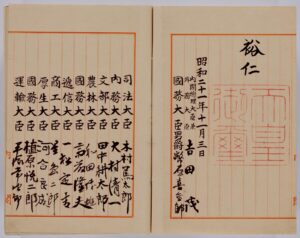 裕仁
天皇御璽
昭和二十一年十一月三日
内閣總理大臣兼
外務大臣 吉田茂
國務大臣 男爵 幣原喜重郎
司法大臣 木村篤太郎
内務大臣 大村清一
文部大臣 田中耕太郎
農林大臣 和田博雄
國務大臣 斎藤隆夫
遞信大臣 一松定吉
商工大臣 星島二郎
厚生大臣 河合良成
國務大臣 植原悦二郎
運輸大臣 平塚常次郎